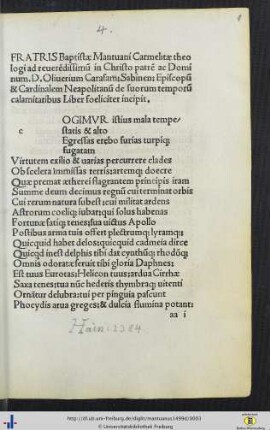 4
1
FRATRIS Baptistæ Mantuani Carmelitæ theo
logi ad reuerēdissimū in Christo patrē ac Domi
num. D. Oliuerium Carafam: Sabinem Episcopū
& Cardinalem Neapolitanū de suorum temporū
calamitatibus Liber foeliciter incipit.
c
OGIMVR istius mala tempe⸗
statis & alto
Egressas erebo furias turpiq;
fugatam
Virtutem exilio & uarias percurrere clades
Ob scelera immissas terris: artemq; docere
Quæ premat ætherei flagrantem principis iram
Summe deum decimus regnū cui terminat orbis
Cui rerum natura subest: cui militat ardens
Astrorum coeliq; iubar: qui solus habenas
Fortunæ fatiq; tenens: sua uictus Apollo
Postibus arma tuis offert plectrumq; lyramq;
Quicquid habet delos: quicquid cadmeia dirce
Quicqd inest delphis tibi dat cynthūq; rhodōq;
Omnis odoratæ seruit tibi gloria Daphnes:
Est tuus Eurotas: Helicon tuus: ardua Cirrhæ
Saxa tenes: tua nūc hedetis thymbraq; uirenti
Ornātur delubra: tui per pinguia pascunt
Phocydis arua greges: & dulcia flumina potant:
aa i
Hain: 2384
http://dl.ub.uni-freiburg.de/diglit/mantuanus1499d/0003
© Universitätsbibliothek Freiburg